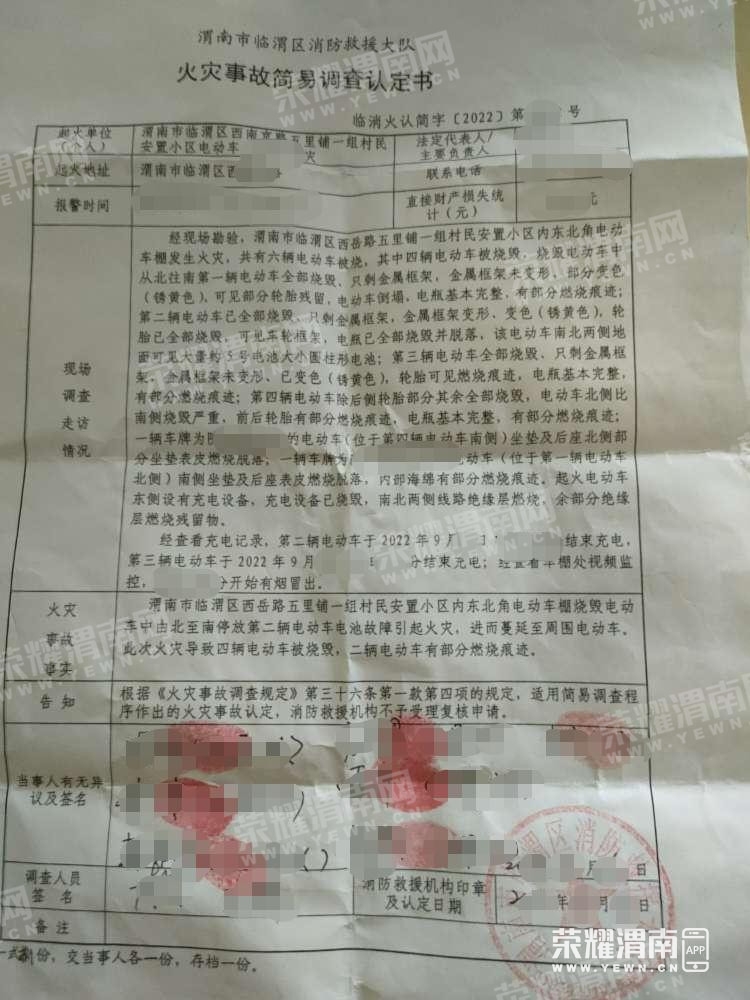 渭南市临渭区消防救援大队
火灾事故简易调查认定书
临消火认简字〔2022〕第 号
起火单位
(个人)
渭南市临渭区西南京路五里铺一组村民
安置小区电动车 灾
法定代表人/
主要负责人
起火地址
渭南市临渭区西
联系电话
报警时间
直接财产损失统
计(元)
元
现场
调查
走访
情况
经现场勘验,渭南市临渭区西岳路五里铺一组村民安置小区内东北角电动
车棚发生火灾,共有六辆电动车被烧,其中四辆电动车被烧毁,烧毁电动车中
从北往南第一辆电动车全部烧毁、只剩金属框架,金属框架未变形、部分变色
(锈黄色),可见部分轮胎残留,电动车倒塌,电瓶基本完整,有部分燃烧痕迹;
第二辆电动车已全部烧毁、只剩金属框架,金属框架变形、变色(锈黄色),轮
胎已全部烧毁,可见车轮框架,电瓶已全部烧毁并脱落,该电动车南北两侧地
面可见大量约5号电池大小圆柱形电池;第三辆电动车全部烧毁、只剩金属框
架,金属框架未变形、已变色(锈黄色),轮胎可见燃烧痕迹,电瓶基本完整,
有部分燃烧痕迹;第四辆电动车除后侧轮胎部分其余全部烧毁,电动车北侧比
南侧烧毁严重,前后轮胎有部分燃烧痕迹,电瓶基本完整,有部分燃烧痕迹;
一辆车牌为 的电动车(位于第四辆电动车南侧)坐垫及后座北侧部
分坐垫表皮燃烧脱落;一辆车牌为 电动车(位于第一辆电动车
北侧)南侧坐垫及后座表皮燃烧脱落,内部海绵有部分燃烧痕迹。起火电动车
东侧设有充电设备,充电设备已烧毁,南北两侧线路绝缘层燃烧,余部分绝缘
层燃烧残留物。
经查看充电记录,第二辆电动车于2022年9月 结束充电,
第三辆电动车于2022年9月 分结束充电;经查看车棚处视频监
控, 分开始有烟冒出。
火灾
事故
事实
渭南市临渭区西岳路五里铺一组村民安置小区内东北角电动车棚烧毁电动
车中由北至南停放第二辆电动车电池故障引起火灾,进而蔓延至周围电动车。
此次火灾导致四辆电动车被烧毁,二辆电动车有部分燃烧痕迹。
告知
根据《火灾事故调查规定》第三十六条第一款第四项的规定,适用简易调查程
序作出的火灾事故认定,消防救援机构不予受理复核申请。
当事人有无异
议及签名
月 日
调查人员
签名
消防救援机构印章
及认定日期
年 月 日
备注
一式 份,交当事人各一份,存档一份。
荣耀渭南网
WWW.YEWN.CN
荣耀渭南 APP
WWW.YEWN.CN